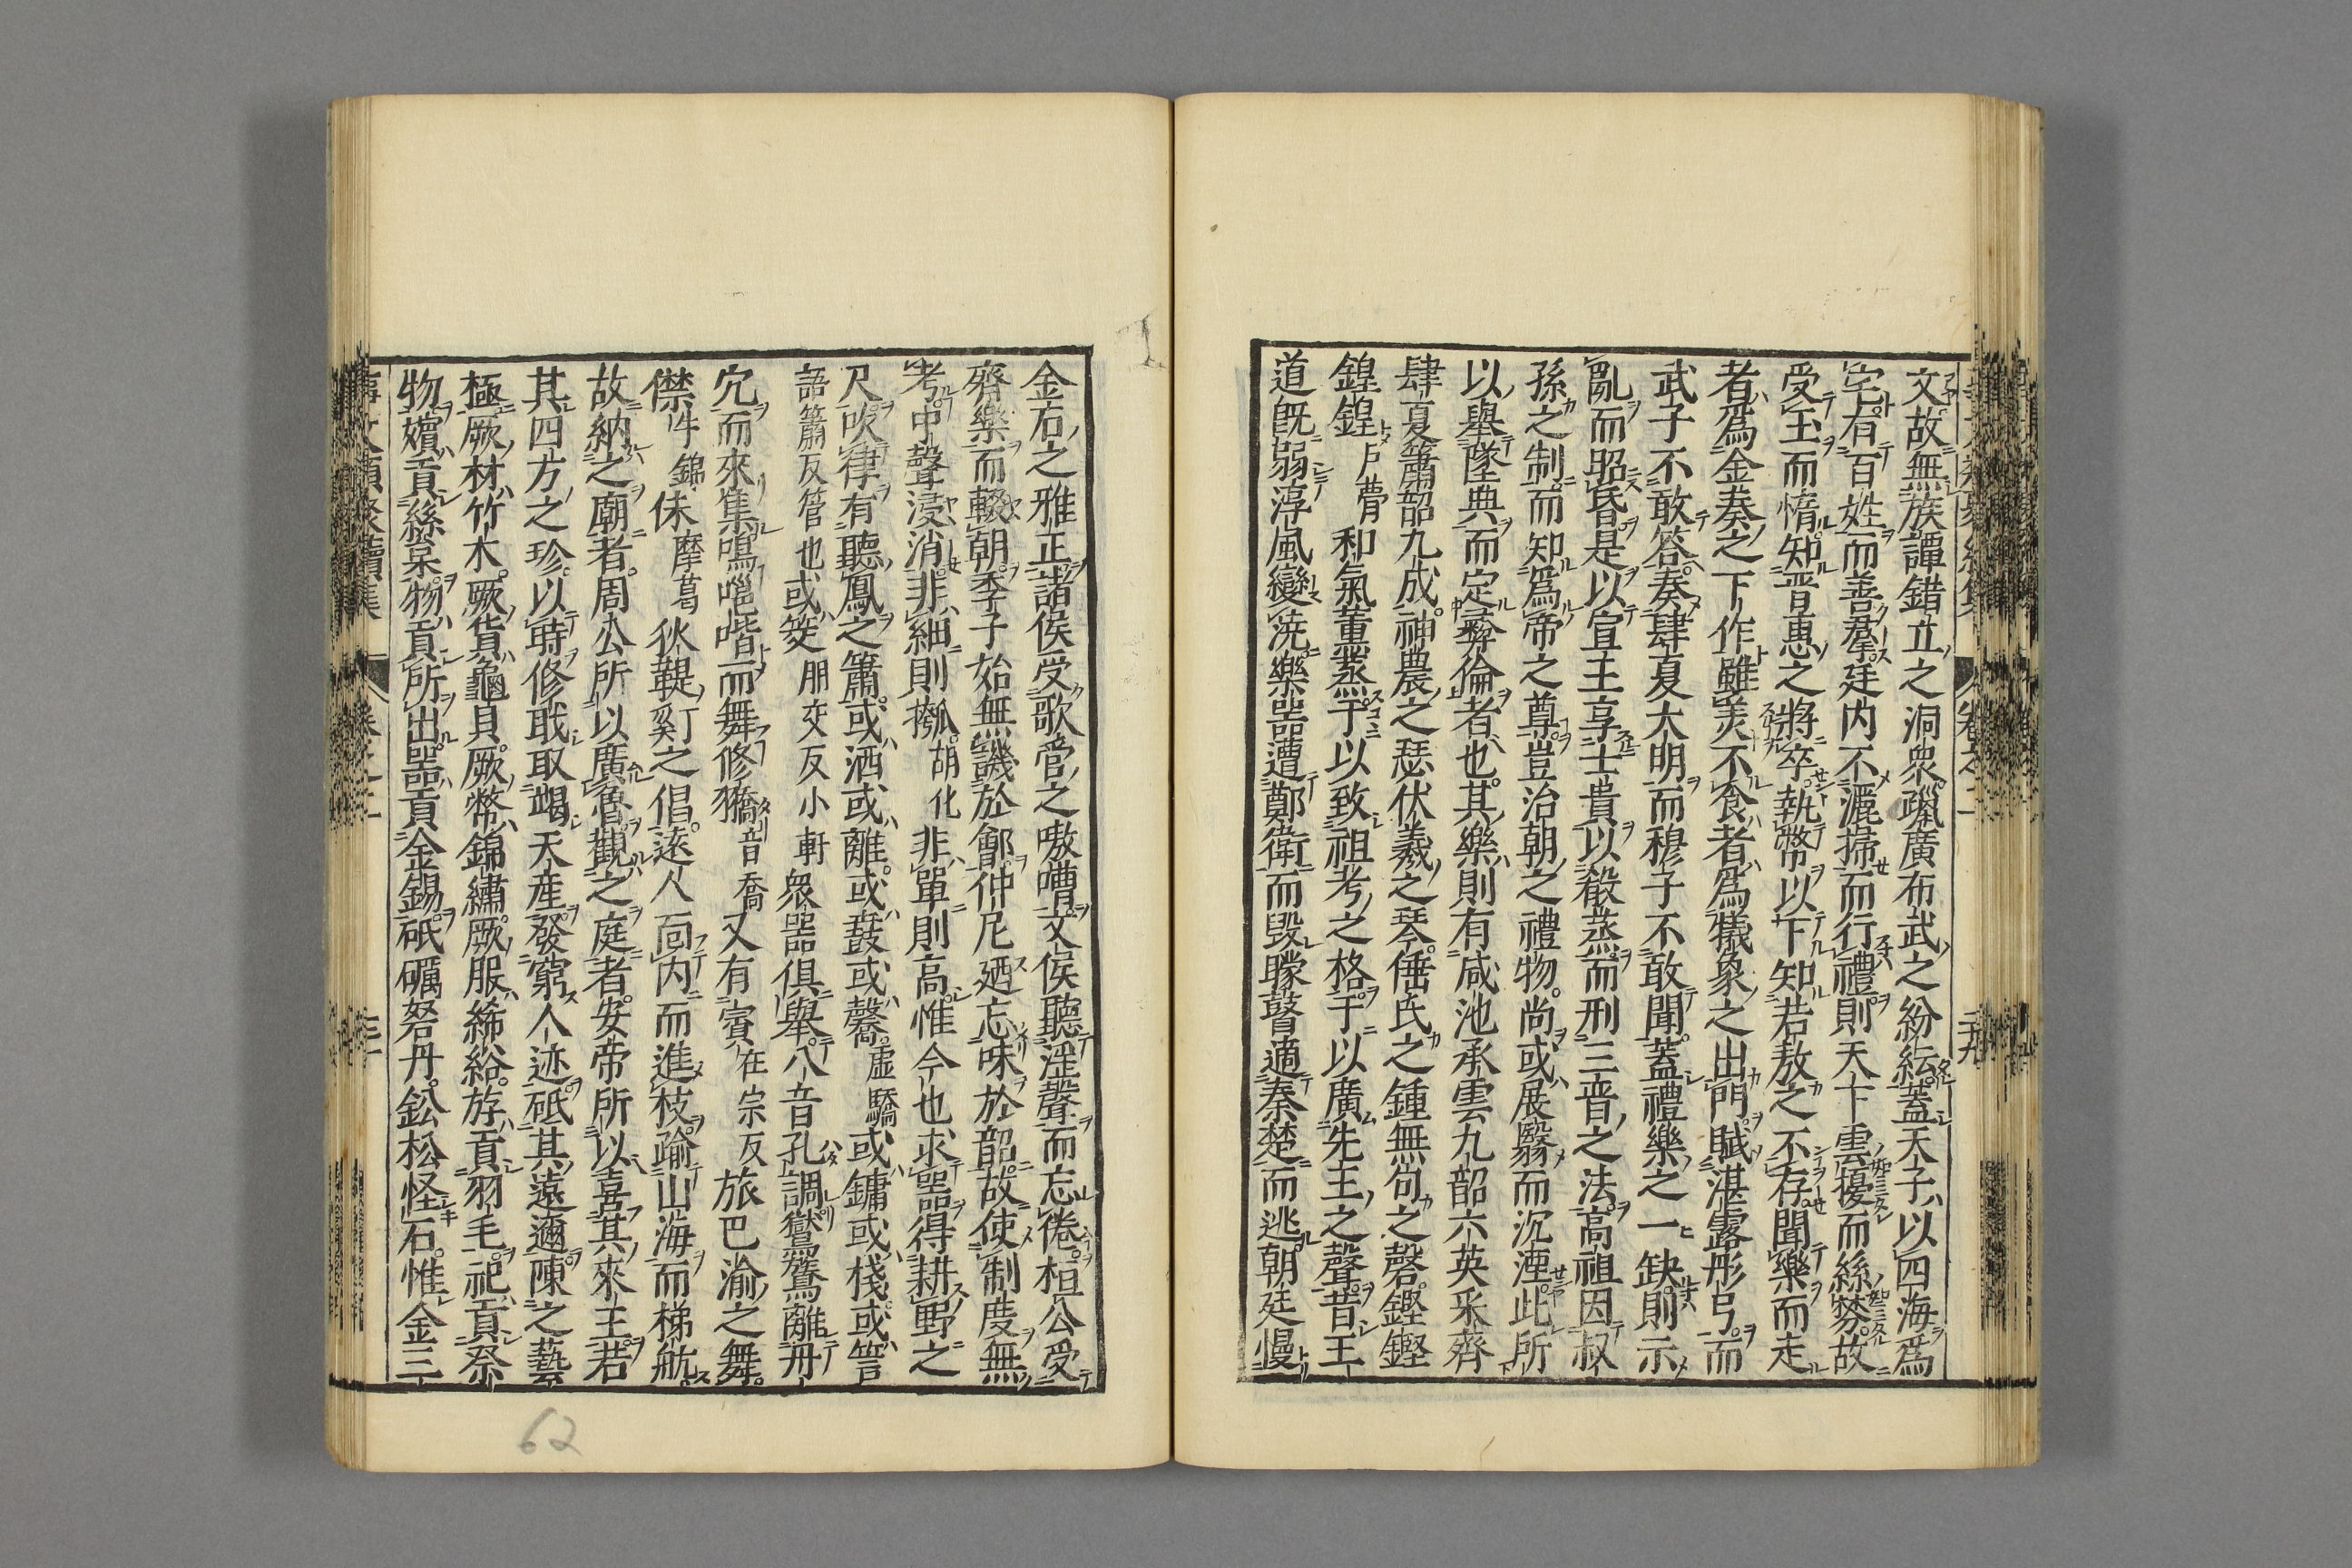 文故無族譚錯立之洞衆躐廣布武之紛紜蓋天子以四海爲
宅有百姓而善羣廷内不灑掃而行禮則天下雲擾而絲棼故
受玉而惰知晋惠之將卒執幣以下知若敖之不存聞樂而走
者爲金奏之下作雖美不食者爲犠象之出門賦湛露彤弓而
武子不敢答奏肆夏大明而穆子不敢聞蓋禮樂之一缺則示
亂而昭昏是以宣王享士貴以殽蒸而刑三晋之法高祖因叔
孫之制而知爲帝之尊豈治朝之禮物尚或展翳而沉湮此所
以舉墜典而定彛倫者也其樂則有咸池承雲九韶六英采齊
肆夏簫韶九成神農之瑟伏羲之琴倕氏之鍾無句之磬鏗鏗
鍠鍠戶薨和氣薫蒸于以致祖考之格于以廣先王之聲昔王
道既弱淳風變澆樂器遭鄭衛而毀矇瞽適秦楚而逃朝廷慢
金石之雅正諸侯受歌管之嗷嘈文侯聽淫聲而忘倦桓公受
齊樂而輟朝季子始無譏於鄶仲尼廼忘味於韶故使制度無
考中聲浸消非細則摦胡化非單則高惟今也求器得耕野之
尺吹律有聽鳳之簫或洒或離或鼖或馨虛驕或鏞或棧或箮
語簫反管也或筊朋交反小軒衆器俱舉八音孔調鸑鷟離丹
穴而來集鳴嗈喈而舞修獢音喬又有賓在宗反旅巴渝之舞
僸牛錦佅摩葛狄鞮奚丁之倡逺人面内而進枝踰山海而梯航
故納之廟者周公所以廣魯觀之庭者安帝所以喜其來王若
其四方之珍以時修職取竭天産發窮人迹砥其遠邇陳之藝
極厥材竹木厥貨龜貝厥幣錦繡厥服絺綌斿貢羽毛祀貢祭
物嬪貢絲枲物貢所出器貢金錫砥礪砮丹鈆松怪石惟金三
事文類聚續集 卷之二 三十
卷之二 二十九
62